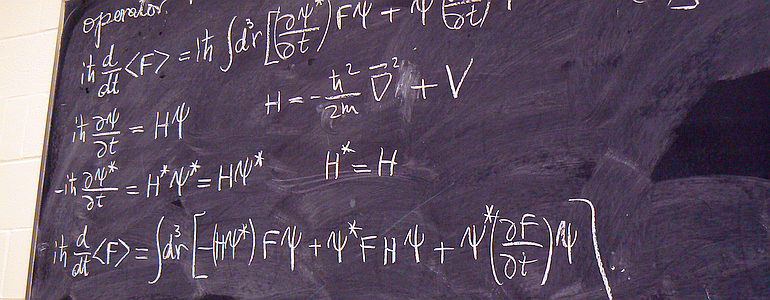 operator.
iħ d/dt <F> = iħ ∫d³r [(∂Ψ*/∂t) FΨ + Ψ
H = - ħ²/2m ∇² + V
iħ ∂Ψ/∂t = HΨ
-iħ ∂Ψ*/∂t = H*Ψ* = HΨ* H* = H
iħ d/dt <F> = ∫d³r [-(HΨ*) FΨ + Ψ*FHΨ + Ψ*(∂F/∂t)Ψ]